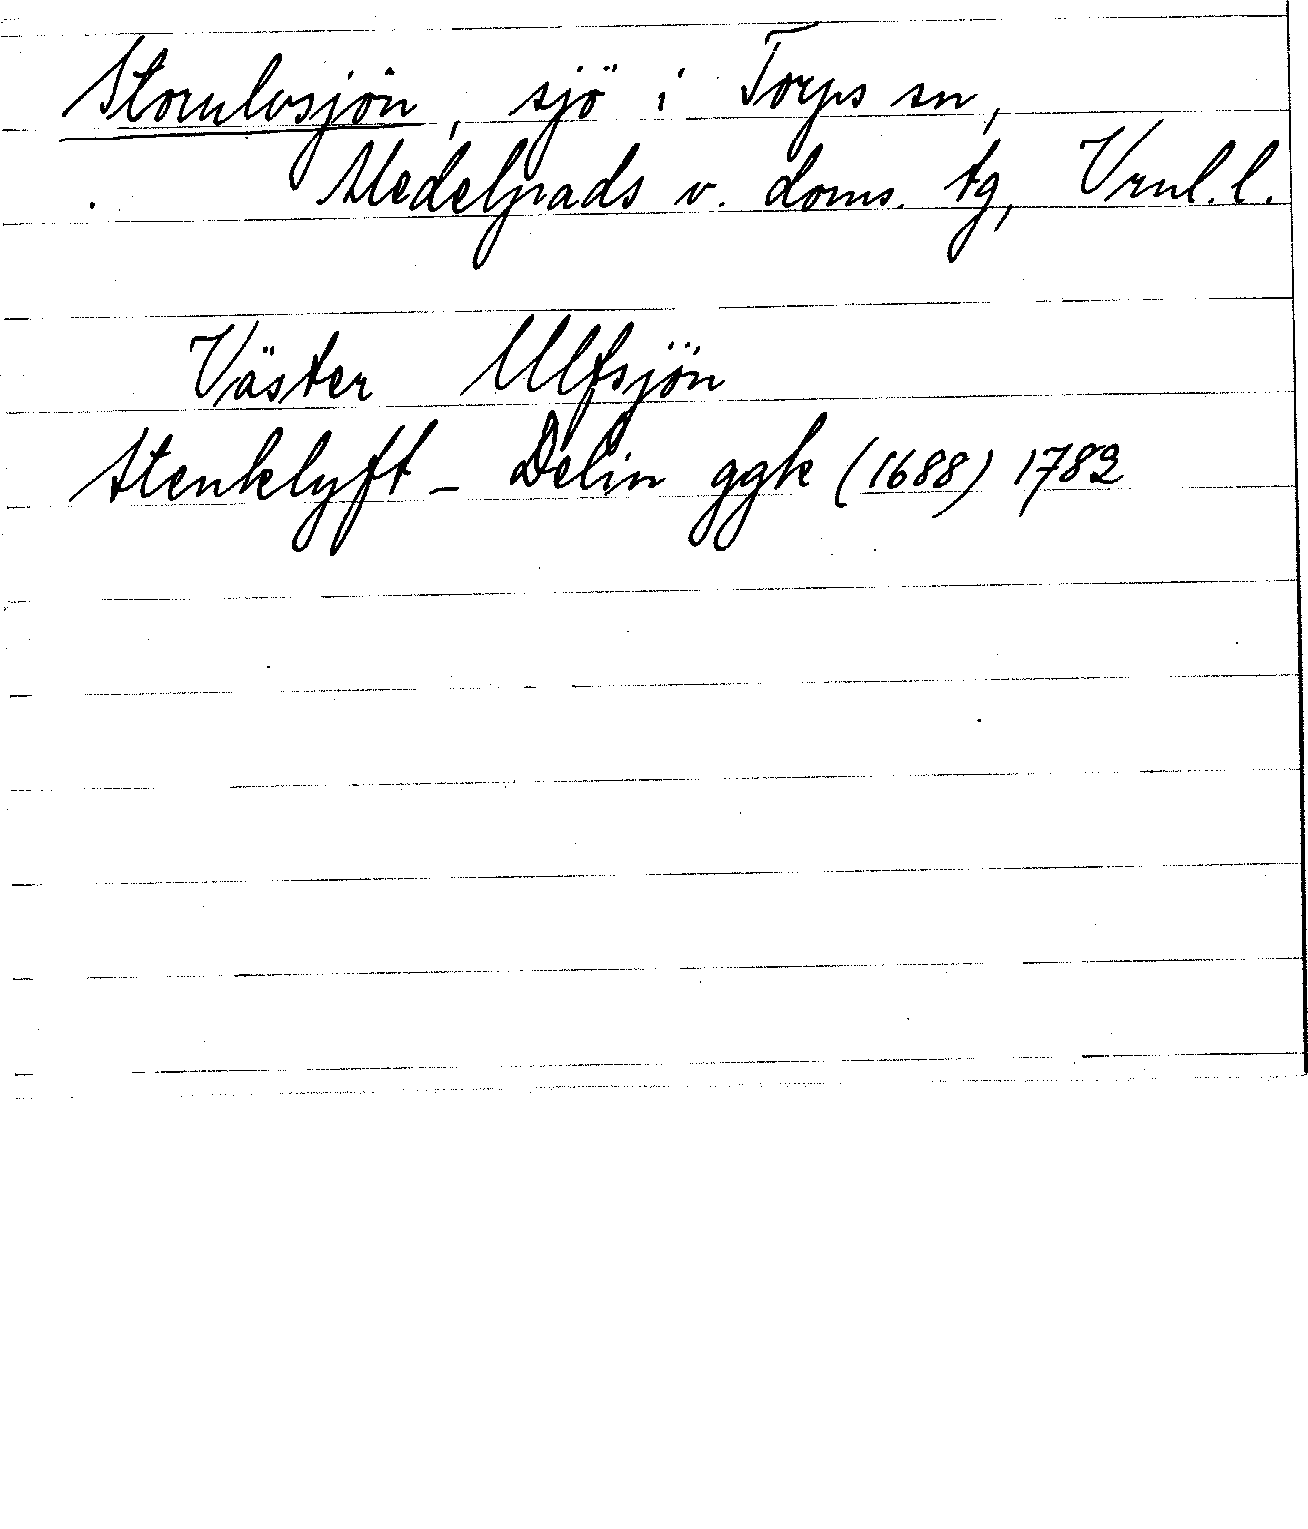 Storulvsjön, sjö i Torps sn,
Medelpads v. doms. tg, Vrnl. l.
Väster Ulfsjön
Stenklyft - Delin ggk (1688) 1782